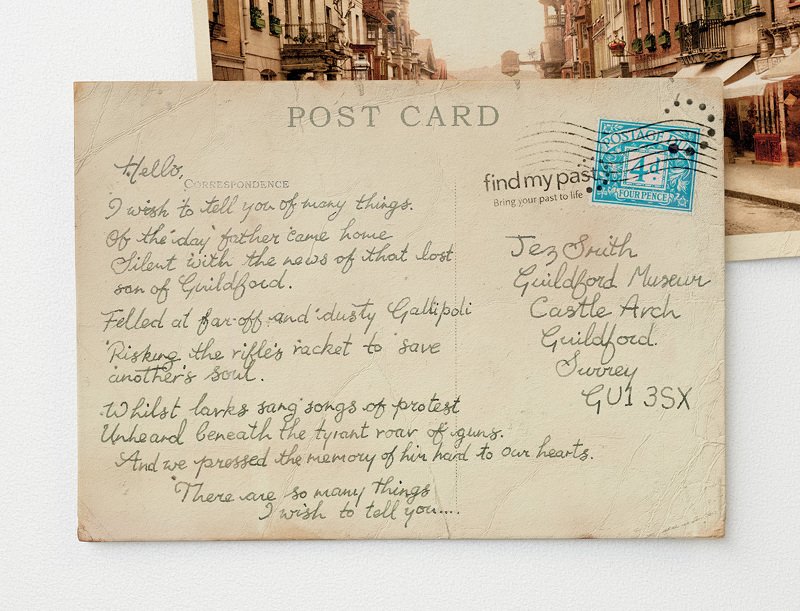 POST CARD
CORRESPONDENCE
Hello,
I wish to tell you of many things.
Of the day father came home
Silent with the news of that lost
son of Guildford.
Felled at far-off and dusty Gallipoli
Risking the rifle's racket to save
another's soul.
Whilst larks sang songs of protest
Unheard beneath the tyrant roar of guns.
And we pressed the memory of him hard to our hearts.
There are so many things
I wish to tell you....
findmypast
Bring your past to life
POSTAGE DUE
4d
FOUR PENCE
Jez Smith
Guildford Museum
Castle Arch
Guildford.
Surrey
GU1 3SX